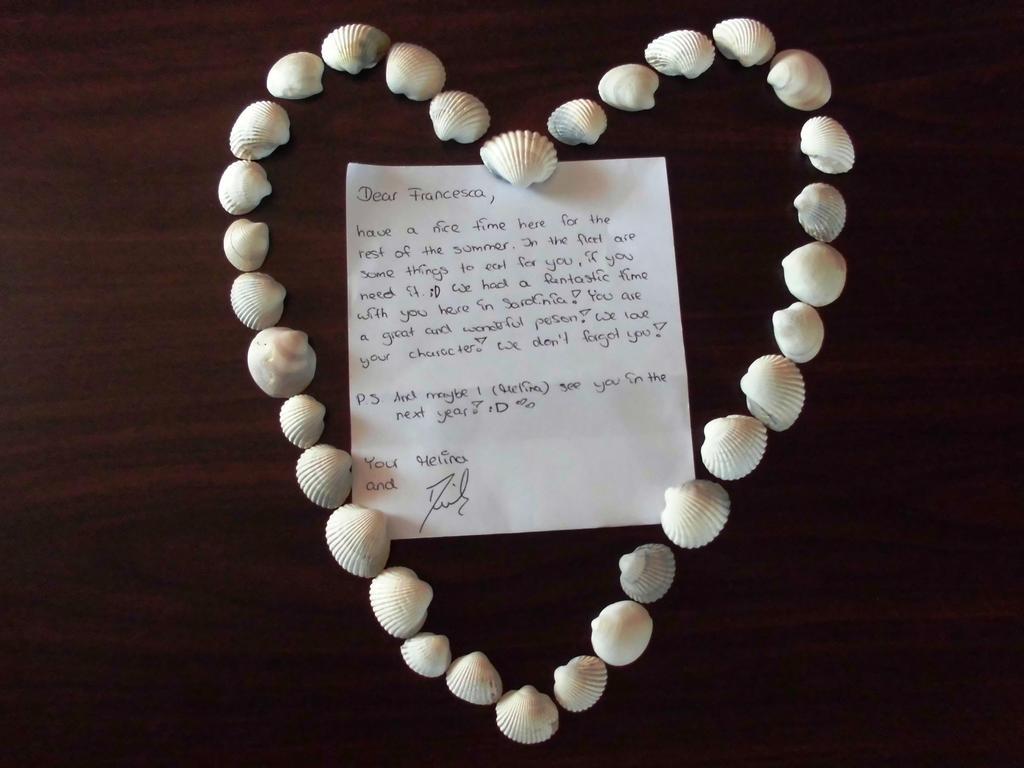 Dear Francesca,
have a nice time here for the
rest of the summer. In the flat are
some things to eat for you, if you
need it. ;D We had a fantastic time
with you here in Sardinia! You are
a great and wonderful person! We love
your character! We don't forgot you!
P.S And maybe I (Melina) see you in the
next year! :D
Your Melina
and